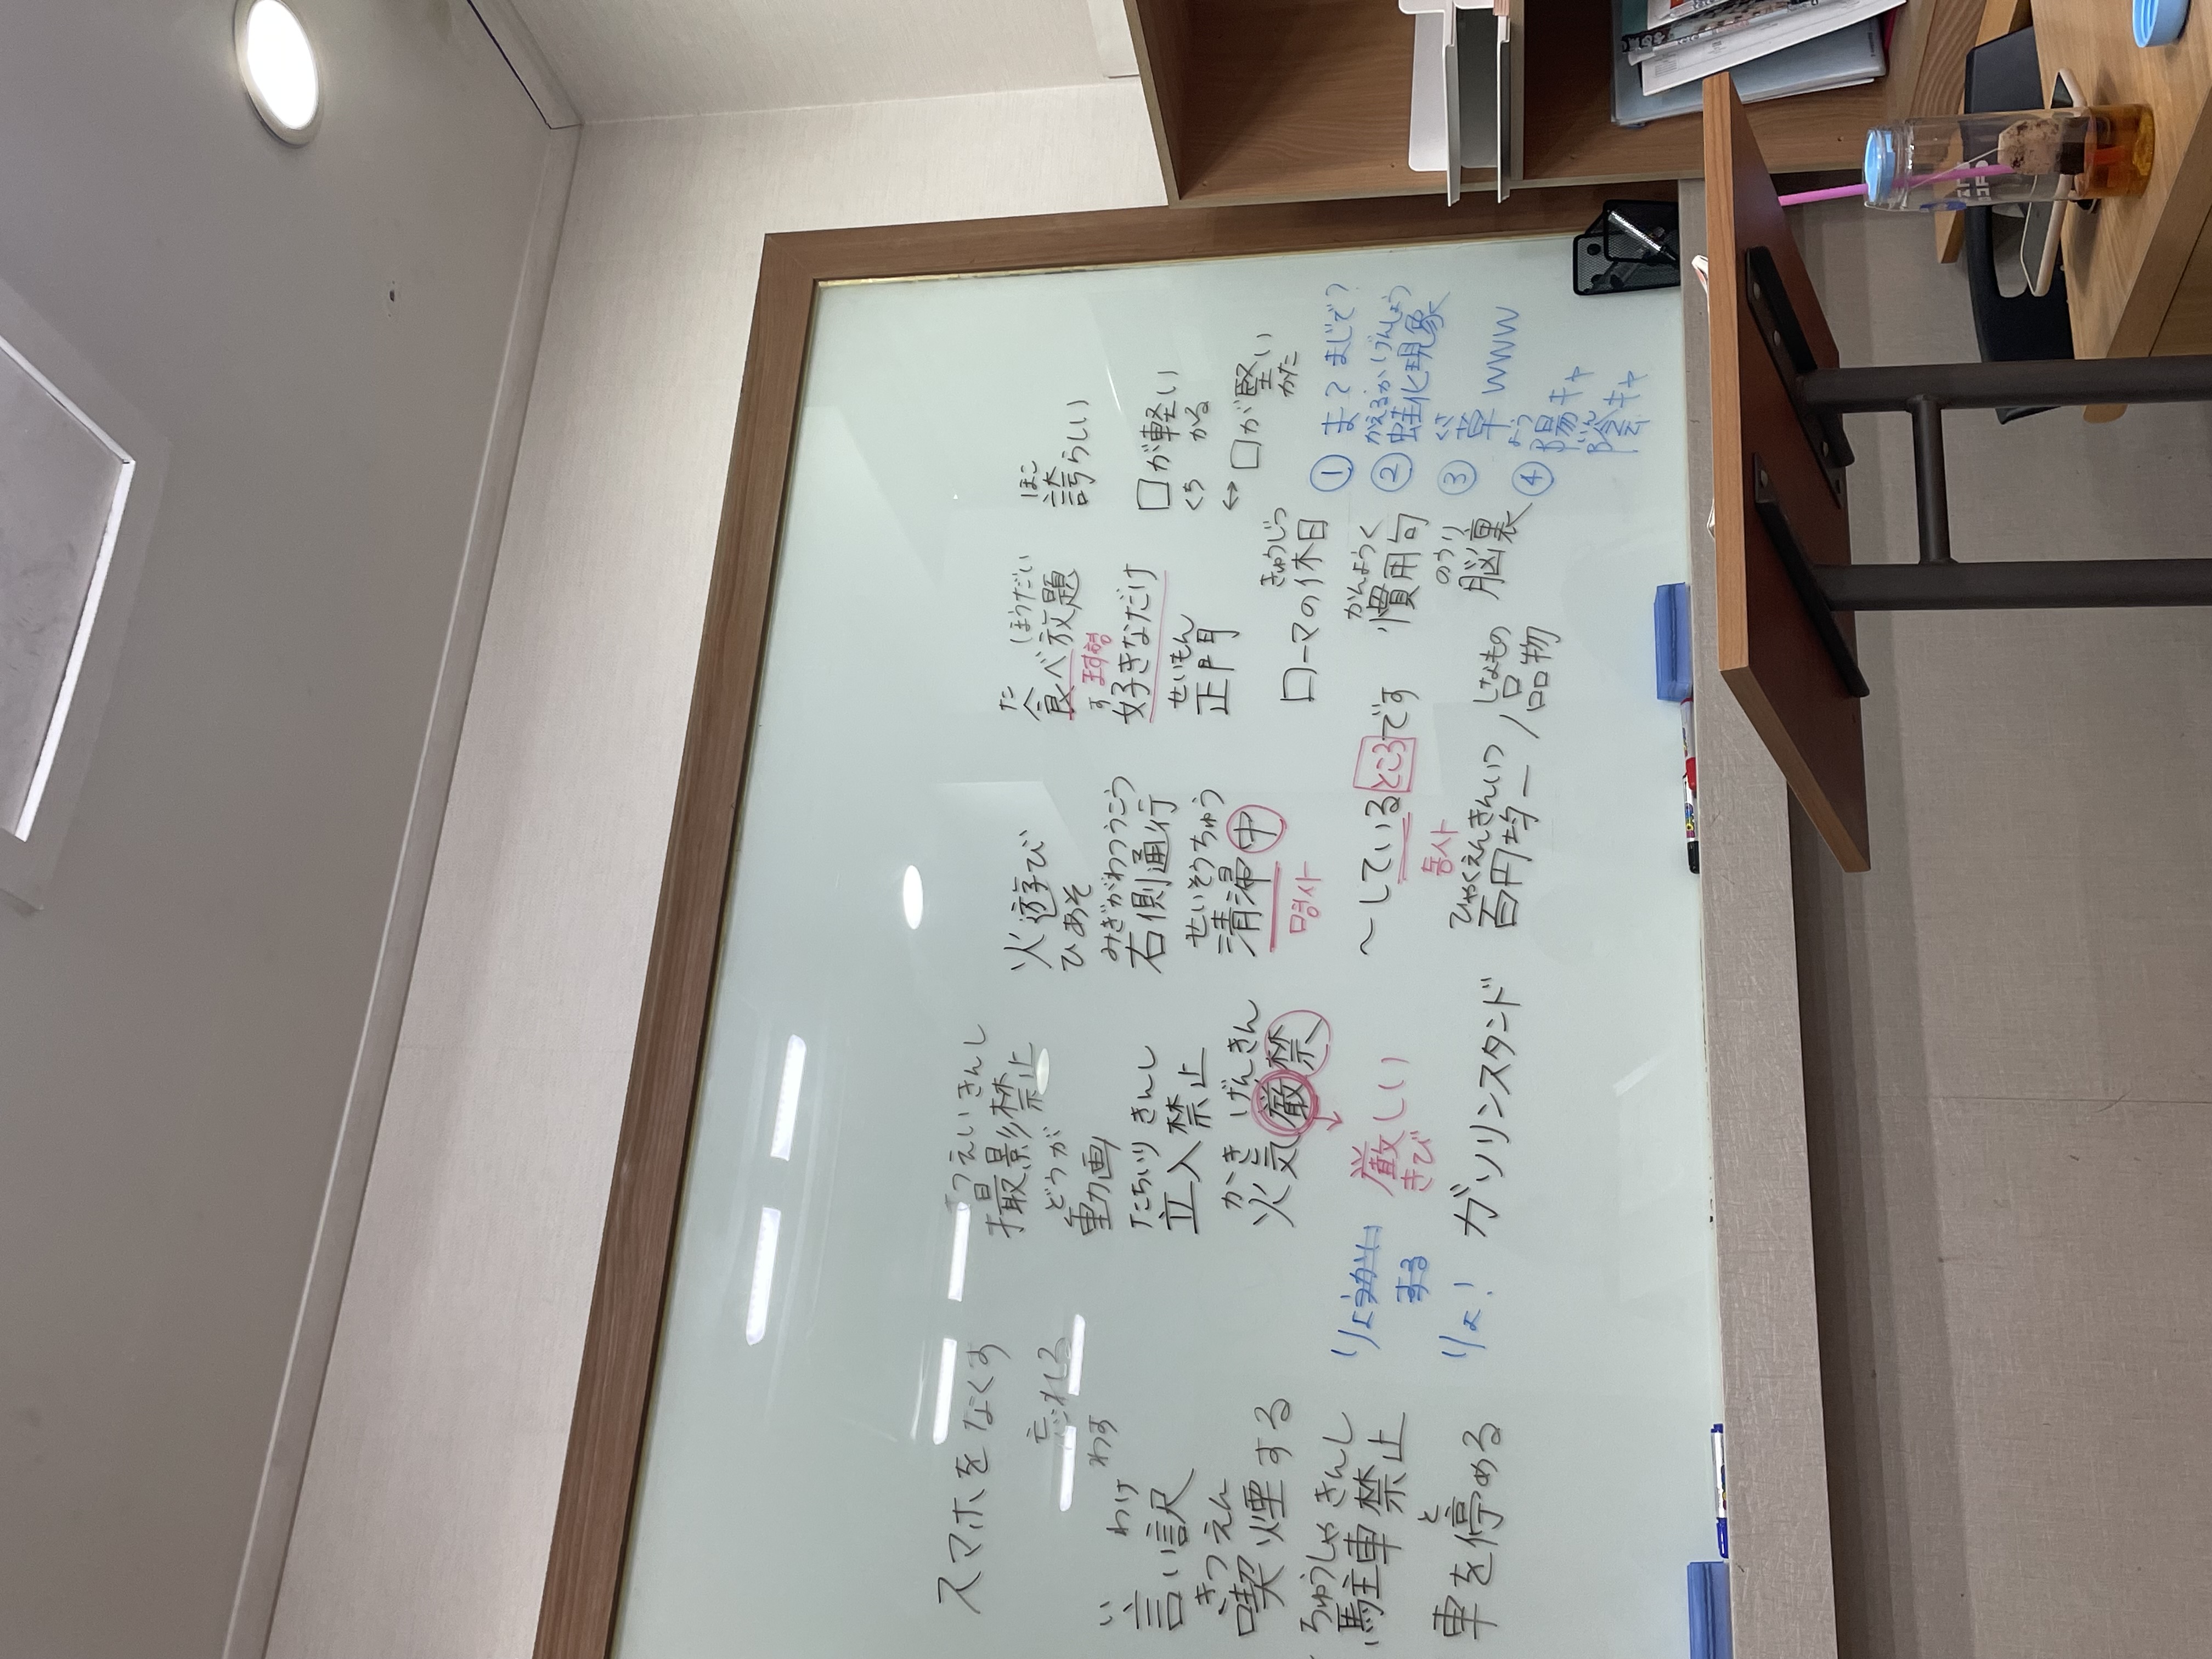 スマホをなくす
忘れる
わす
い わけ
言い訳
きつえん
喫煙する
ちゅうしゃ きんし
駐車禁止
と
車を停める
さつえいきんし
撮影禁止
どうが
動画
たちいり きんし
立入禁止
かき げんきん
火気厳禁
厳しい
きび
りょうかい
する
りょ!
ガソリンスタンド
火遊び
ひあそ
みぎがわつうこう
右側通行
せいそうちゅう
清掃中
명사
~しているところです
동사
ひゃくえんきんいつ
百円均一
しなもの
/品物
た ほうだい
食べ放題
ます형
す
好きなだけ
せいもん
正門
きゅうじつ
ローマの休日
かんようく
慣用句
のうり
脳裏
ほこ
誇らしい
口が軽い
くち かる
↔口が堅い
かた
① まって まじで?
かえるかげんしょう
② 蛙化現象
くさ
③ 草 www
よう
④ 陽キャ
いん
陰キャ